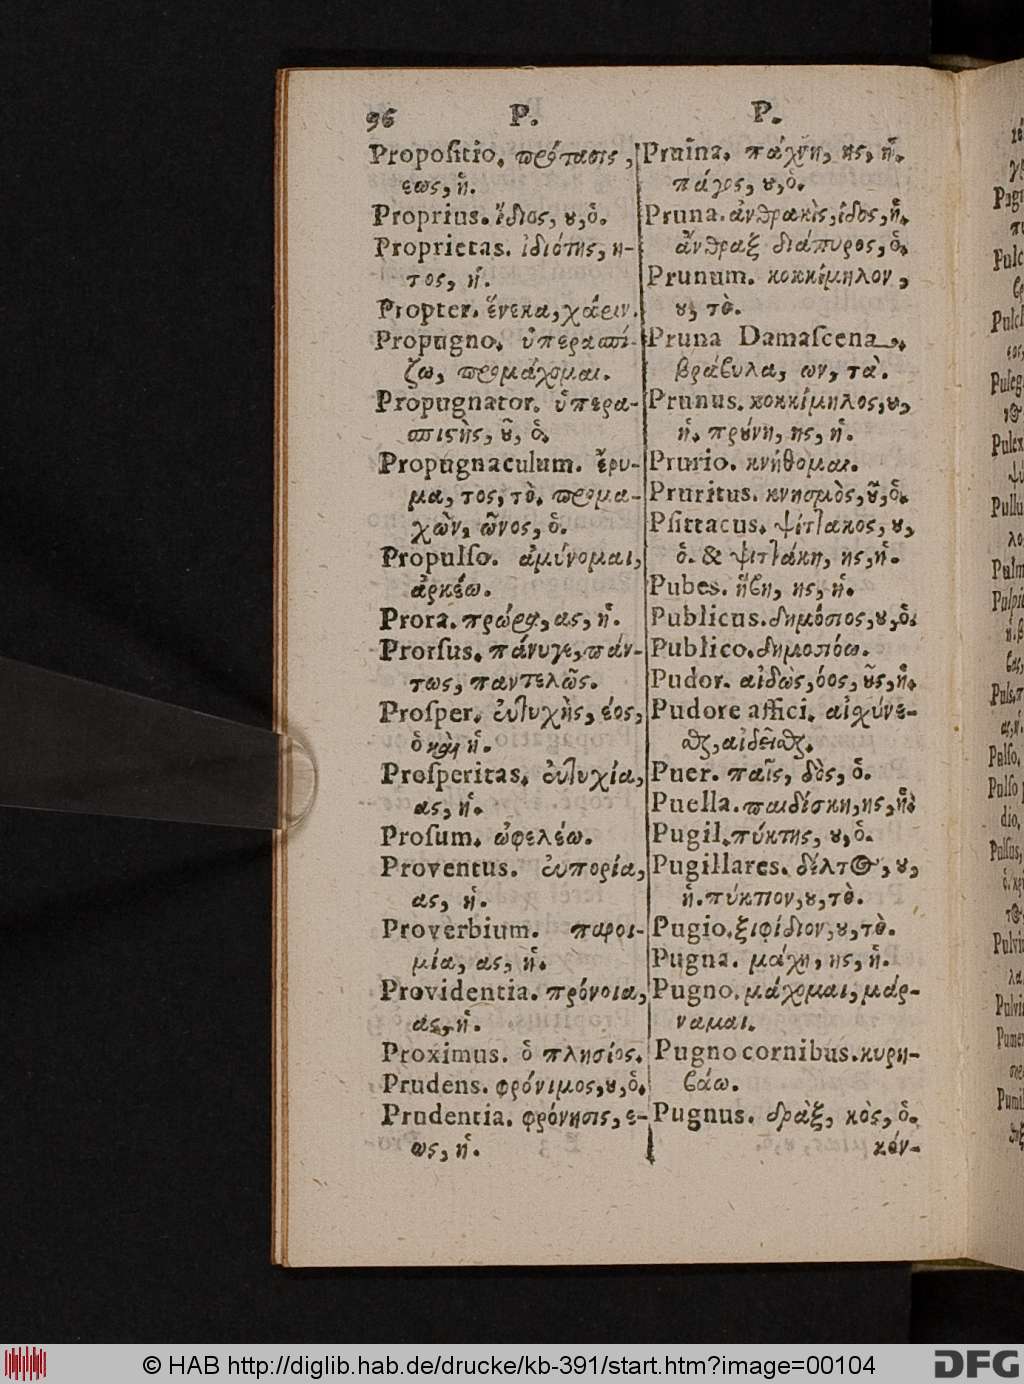 96 P. P.
Propoſitio. πρότασις,
εως, ἡ.
Proprius. ἴδιος, ου, ὁ.
Proprietas. ἰδιότης, η-
τος, ἡ.
Propter. ἕνεκα, χάριν.
Propugno. ὑπερασπί-
ζω, προμάχομαι.
Propugnator. ὑπερα-
σπιστὴς, οῦ, ὁ.
Propugnaculum. ἔρυ-
μα, τος, τὸ. προμα-
χὼν, ῶνος, ὁ.
Propulſo. ἀμύνομαι,
ἀρκέω.
Prora. πρώρα, ας, ἡ.
Prorſus. πάνυγε, πάν-
τως, παντελῶς.
Proſper. εὐτυχὴς, έος,
ὁ καὶ ἡ.
Proſperitas. εὐτυχία,
ας, ἡ.
Proſum. ὠφελέω.
Proventus. εὐπορία,
ας, ἡ.
Proverbium. παροι-
μία, ας, ἡ.
Providentia. πρόνοια,
ας, ἡ.
Proximus. ὁ πλησίος.
Prudens. φρόνιμος, ου, ὁ.
Prudentia. φρόνησις, ε-
ως, ἡ.
Pruina. πάχνη, ης, ἡ.
πάγος, ου, ὁ.
Pruna. ἀνθρακὶς, ίδος, ἡ.
ἄνθραξ διάπυρος, ὁ.
Prunum. κοκκίμηλον,
ου, τὸ.
Pruna Damaſcena.
βράβυλα, ων, τὰ.
Prunus. κοκκίμηλος, ου,
ἡ. προύνη, ης, ἡ.
Prurio. κνήθομαι.
Pruritus. κνησμὸς, οῦ, ὁ.
Pſittacus. ψίττακος, ου,
ὁ. & ψιττάκη, ης, ἡ.
Pubes. ἥβη, ης, ἡ.
Publicus. δημόσιος, ου, ὁ.
Publico. δημοσιόω.
Pudor. αἰδὼς, όος, οῦς, ἡ.
Pudore affici. αἰσχύνε-
σθαι, αἰδεῖσθαι.
Puer. παῖς, δὸς, ὁ.
Puella. παιδίσκη, ης, ἡ.
Pugil. πύκτης, ου, ὁ.
Pugillares. δέλτος, ου,
ἡ. πύκτιον, ου, τὸ.
Pugio. ξιφίδιον, ου, τὸ.
Pugna. μάχη, ης, ἡ.
Pugno. μάχομαι, μάρ-
ναμαι.
Pugno cornibus. κυρη-
βάω.
Pugnus. δρὰξ, κὸς, ὁ.
κόν-
© HAB http://diglib.hab.de/drucke/kb-391/start.htm?image=00104
DFG